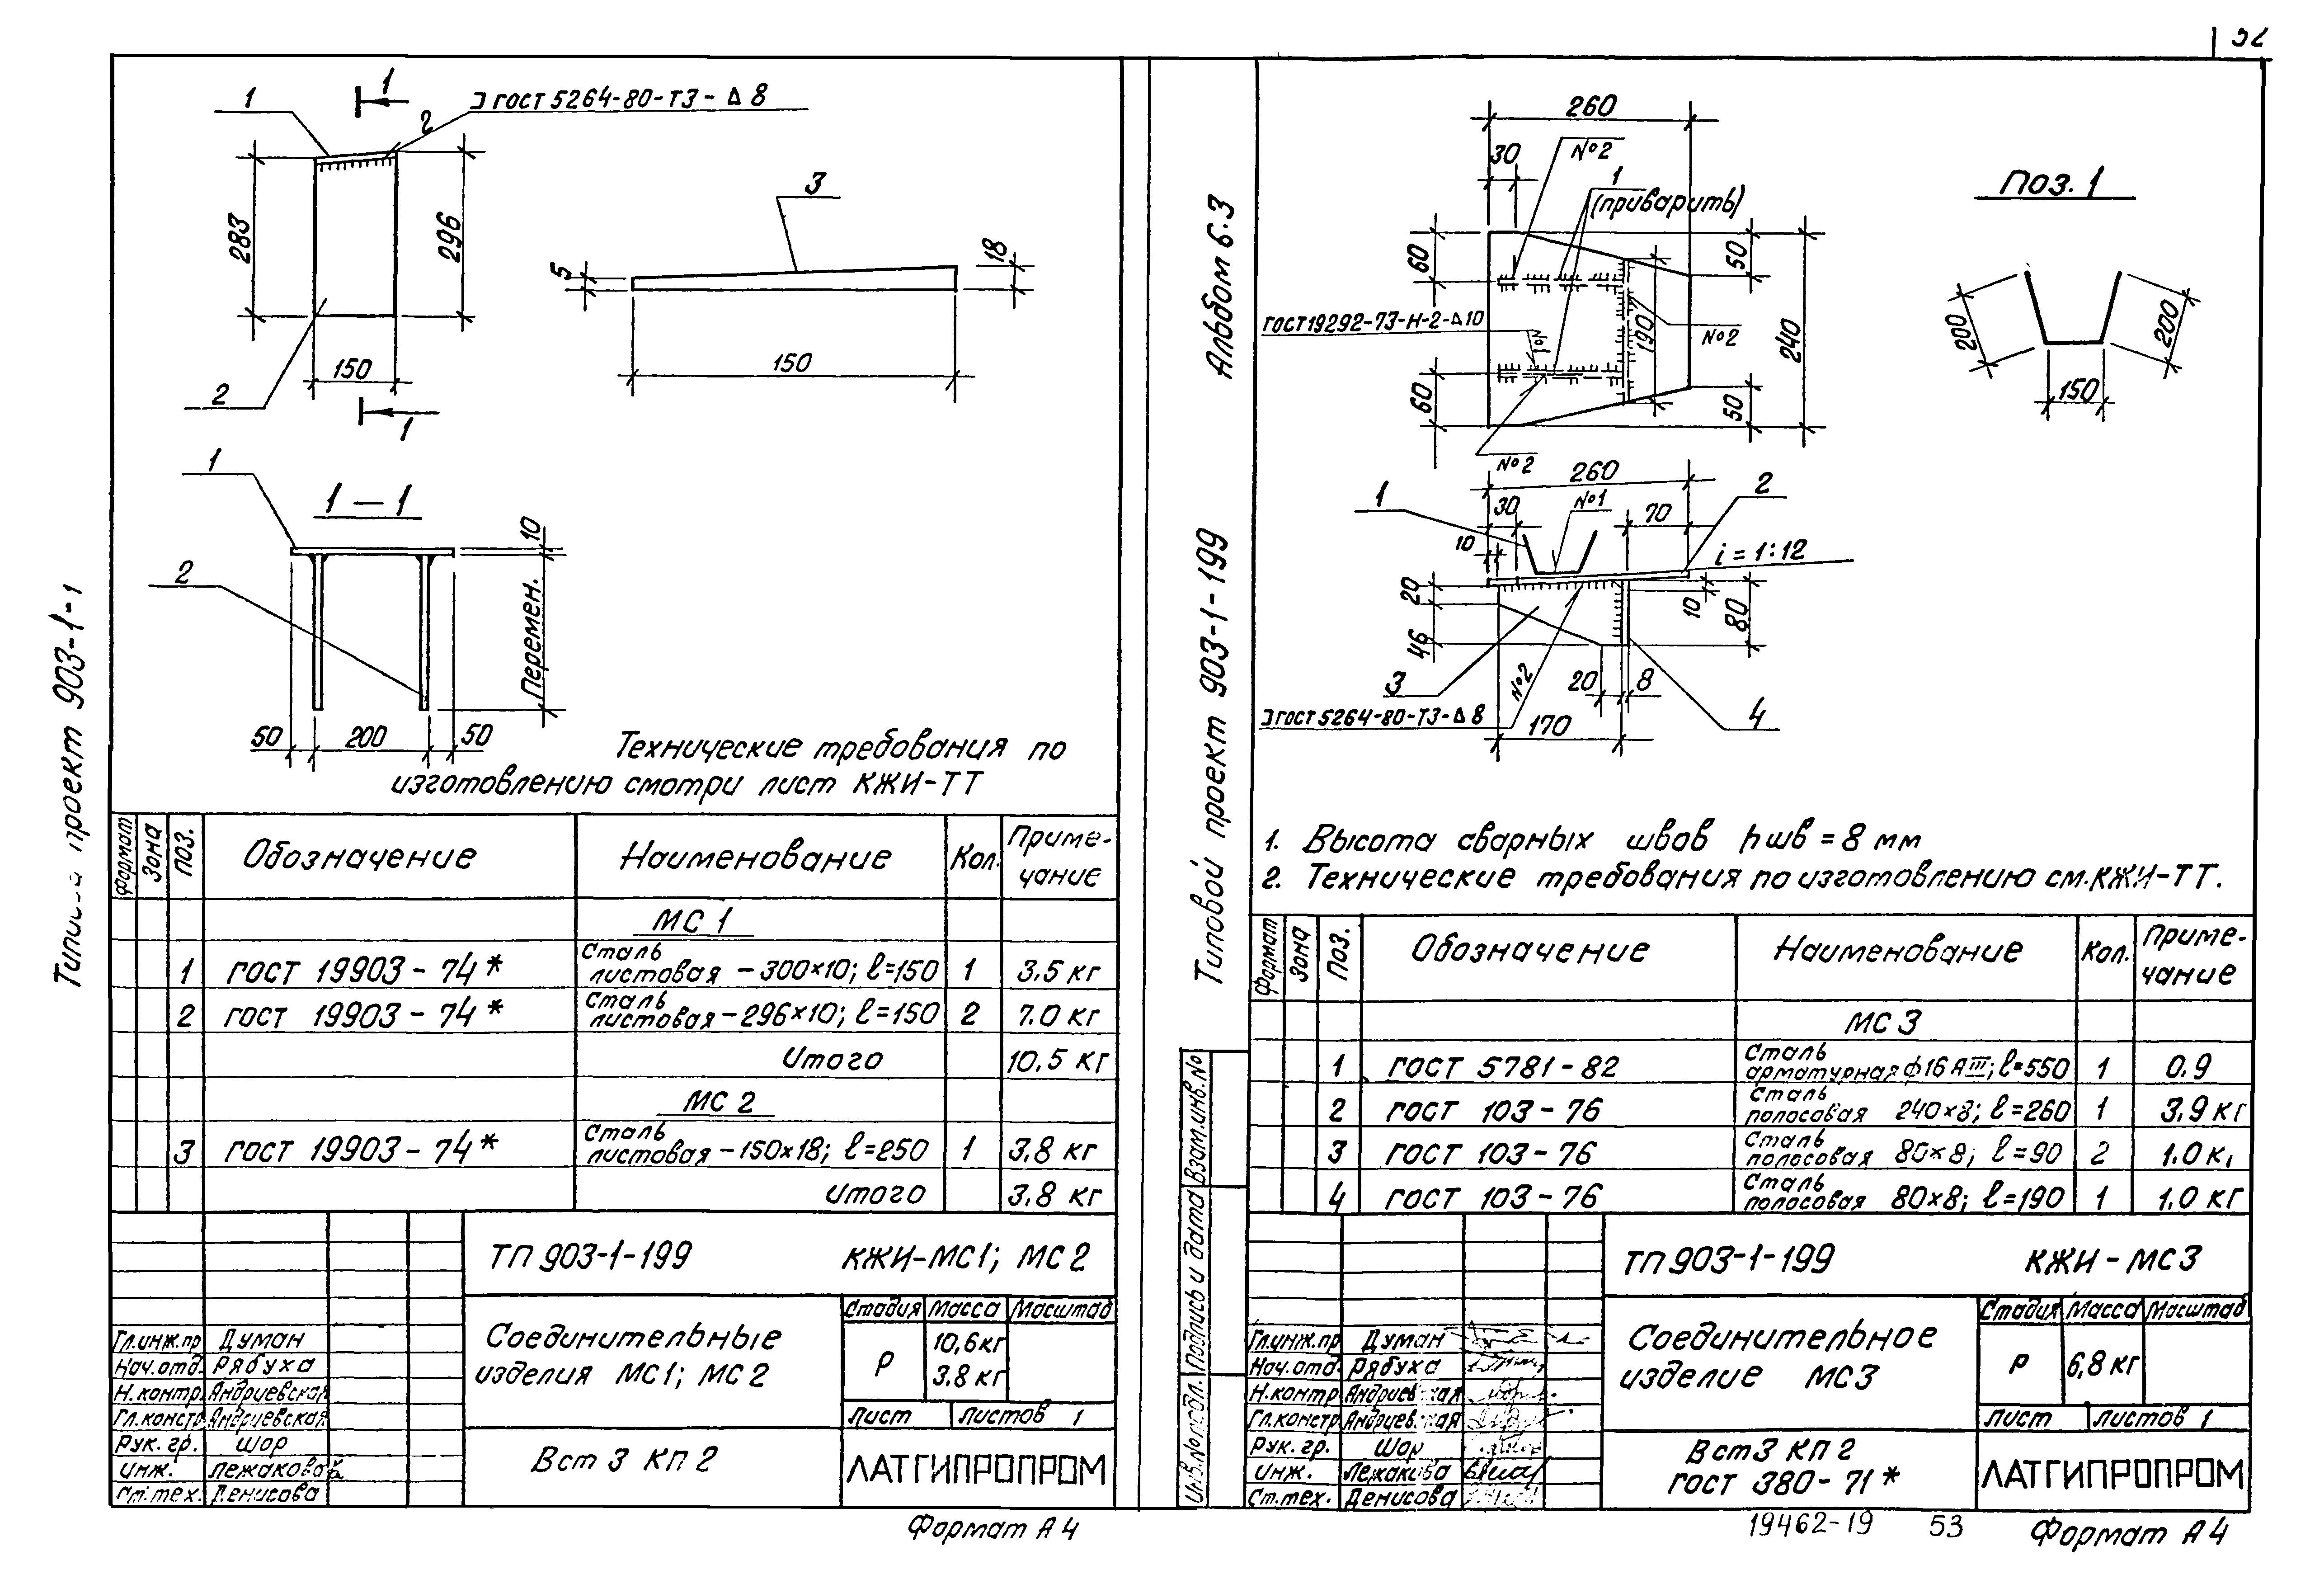 52
Типовой проект 903-1-1
1
1
2
ГОСТ 5264-80-Т3-Δ8
283
296
150
2
1
3
5
18
150
1
1-1
2
10
Перемен.
50
200
50
Технические требования по
изготовлению смотри лист КЖИ-ТТ
Формат
Зона
Поз.
Обозначение
Наименование
Кол.
Приме-
чание
МС 1
1 ГОСТ 19903-74* Сталь листовая -300×10; ℓ=150 1 3.5 кг
2 ГОСТ 19903-74* Сталь листовая -296×10; ℓ=150 2 7.0 кг
Итого 10.5 кг
МС 2
3 ГОСТ 19903-74* Сталь листовая -150×18; ℓ=250 1 3.8 кг
Итого 3.8 кг
ТП 903-1-199 КЖИ-МС1; МС2
Соединительные
изделия МС1; МС2
Стадия Масса Масштаб
Р
10,6кг
3.8 кг
Лист Листов 1
Вст 3 КП 2
ЛАТГИПРОПРОМ
Гл.инж.пр Думан
Нач.отд. Рябуха
Н.контр. Андриевская
Гл.констр. Андриевская
Рук. гр. Шор
Инж. Лежакова
Ст.тех. Денисова
Формат А4
Альбом 6.3
Типовой проект 903-1-199
Взам.инв.№
Подпись и дата
Инв.№подл.
260
30
№2
1
(приварить)
60
50
ГОСТ19292-73-Н-2-Δ10
№1
190
№2
240
60
50
№2
Поз. 1
200
200
150
260
1
30
№1
70
2
10
i = 1:12
20
46
10
80
3
№2
20
8
4
ГОСТ 5264-80-Т3-Δ8
170
1. Высота сварных швов hшв = 8 мм
2. Технические требования по изготовлению см.КЖИ-ТТ.
Формат
Зона
Поз.
Обозначение
Наименование
Кол.
Приме-
чание
МС 3
1 ГОСТ 5781-82 Сталь арматурная ф16 АIII; ℓ=550 1 0.9
2 ГОСТ 103-76 Сталь полосовая 240×8; ℓ=260 1 3.9 кг
3 ГОСТ 103-76 Сталь полосовая 80×8; ℓ=90 2 1.0 к
4 ГОСТ 103-76 Сталь полосовая 80×8; ℓ=190 1 1.0 кг
ТП 903-1-199 КЖИ-МС3
Соединительное
изделие МС3
Стадия Масса Масштаб
Р 6,8 кг
Лист Листов 1
Вст3 КП 2
ГОСТ 380-71*
ЛАТГИПРОПРОМ
Гл.инж.пр Думан
Нач.отд. Рябуха
Н.контр Андриевская
Гл.констр. Андриевская
Рук. гр. Шор
Инж. Лежакова
Ст.тех. Денисова
19462-19 53
Формат А4